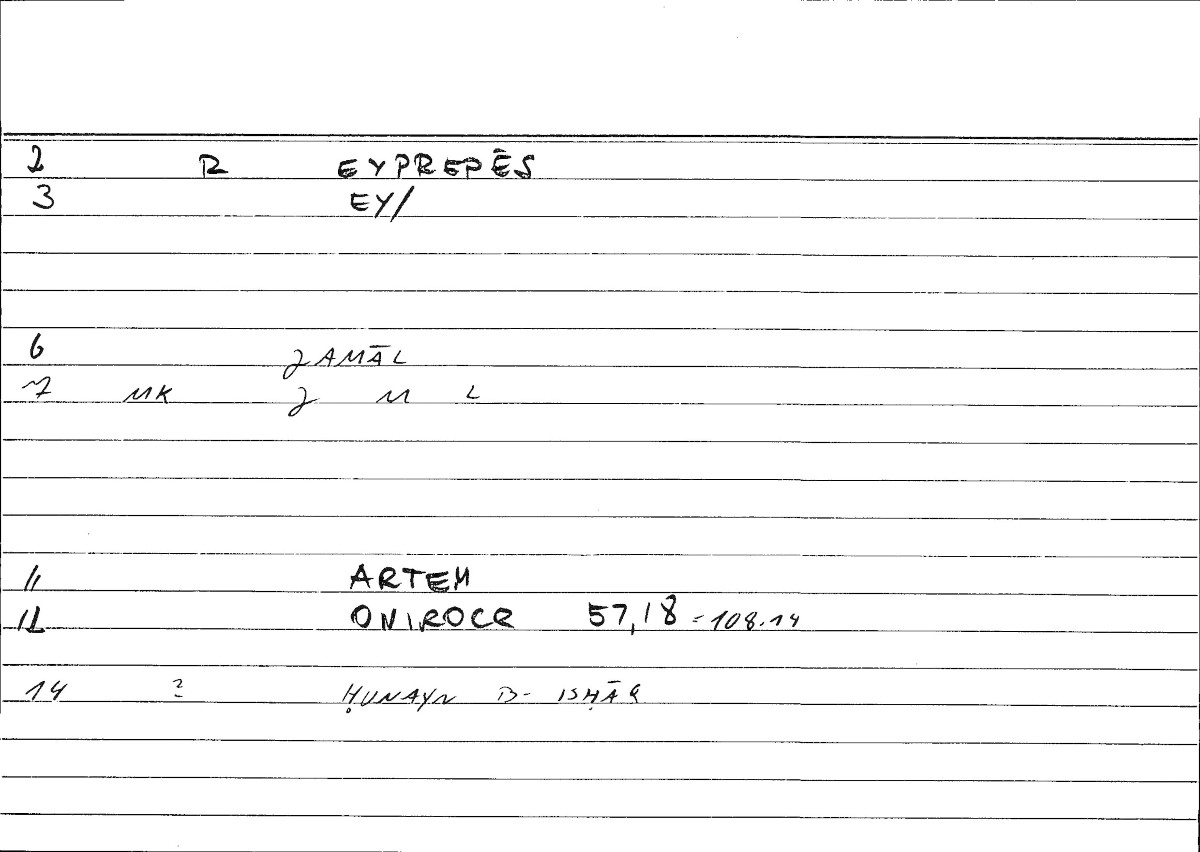 2 R EYPREPĒS
3 EY/
6 JAMĀL
7 MK J M L
11 ARTEM
12 ONIROCR 57,18 = 108.14
14 ? ḤUNAYN B- ISḤĀQ